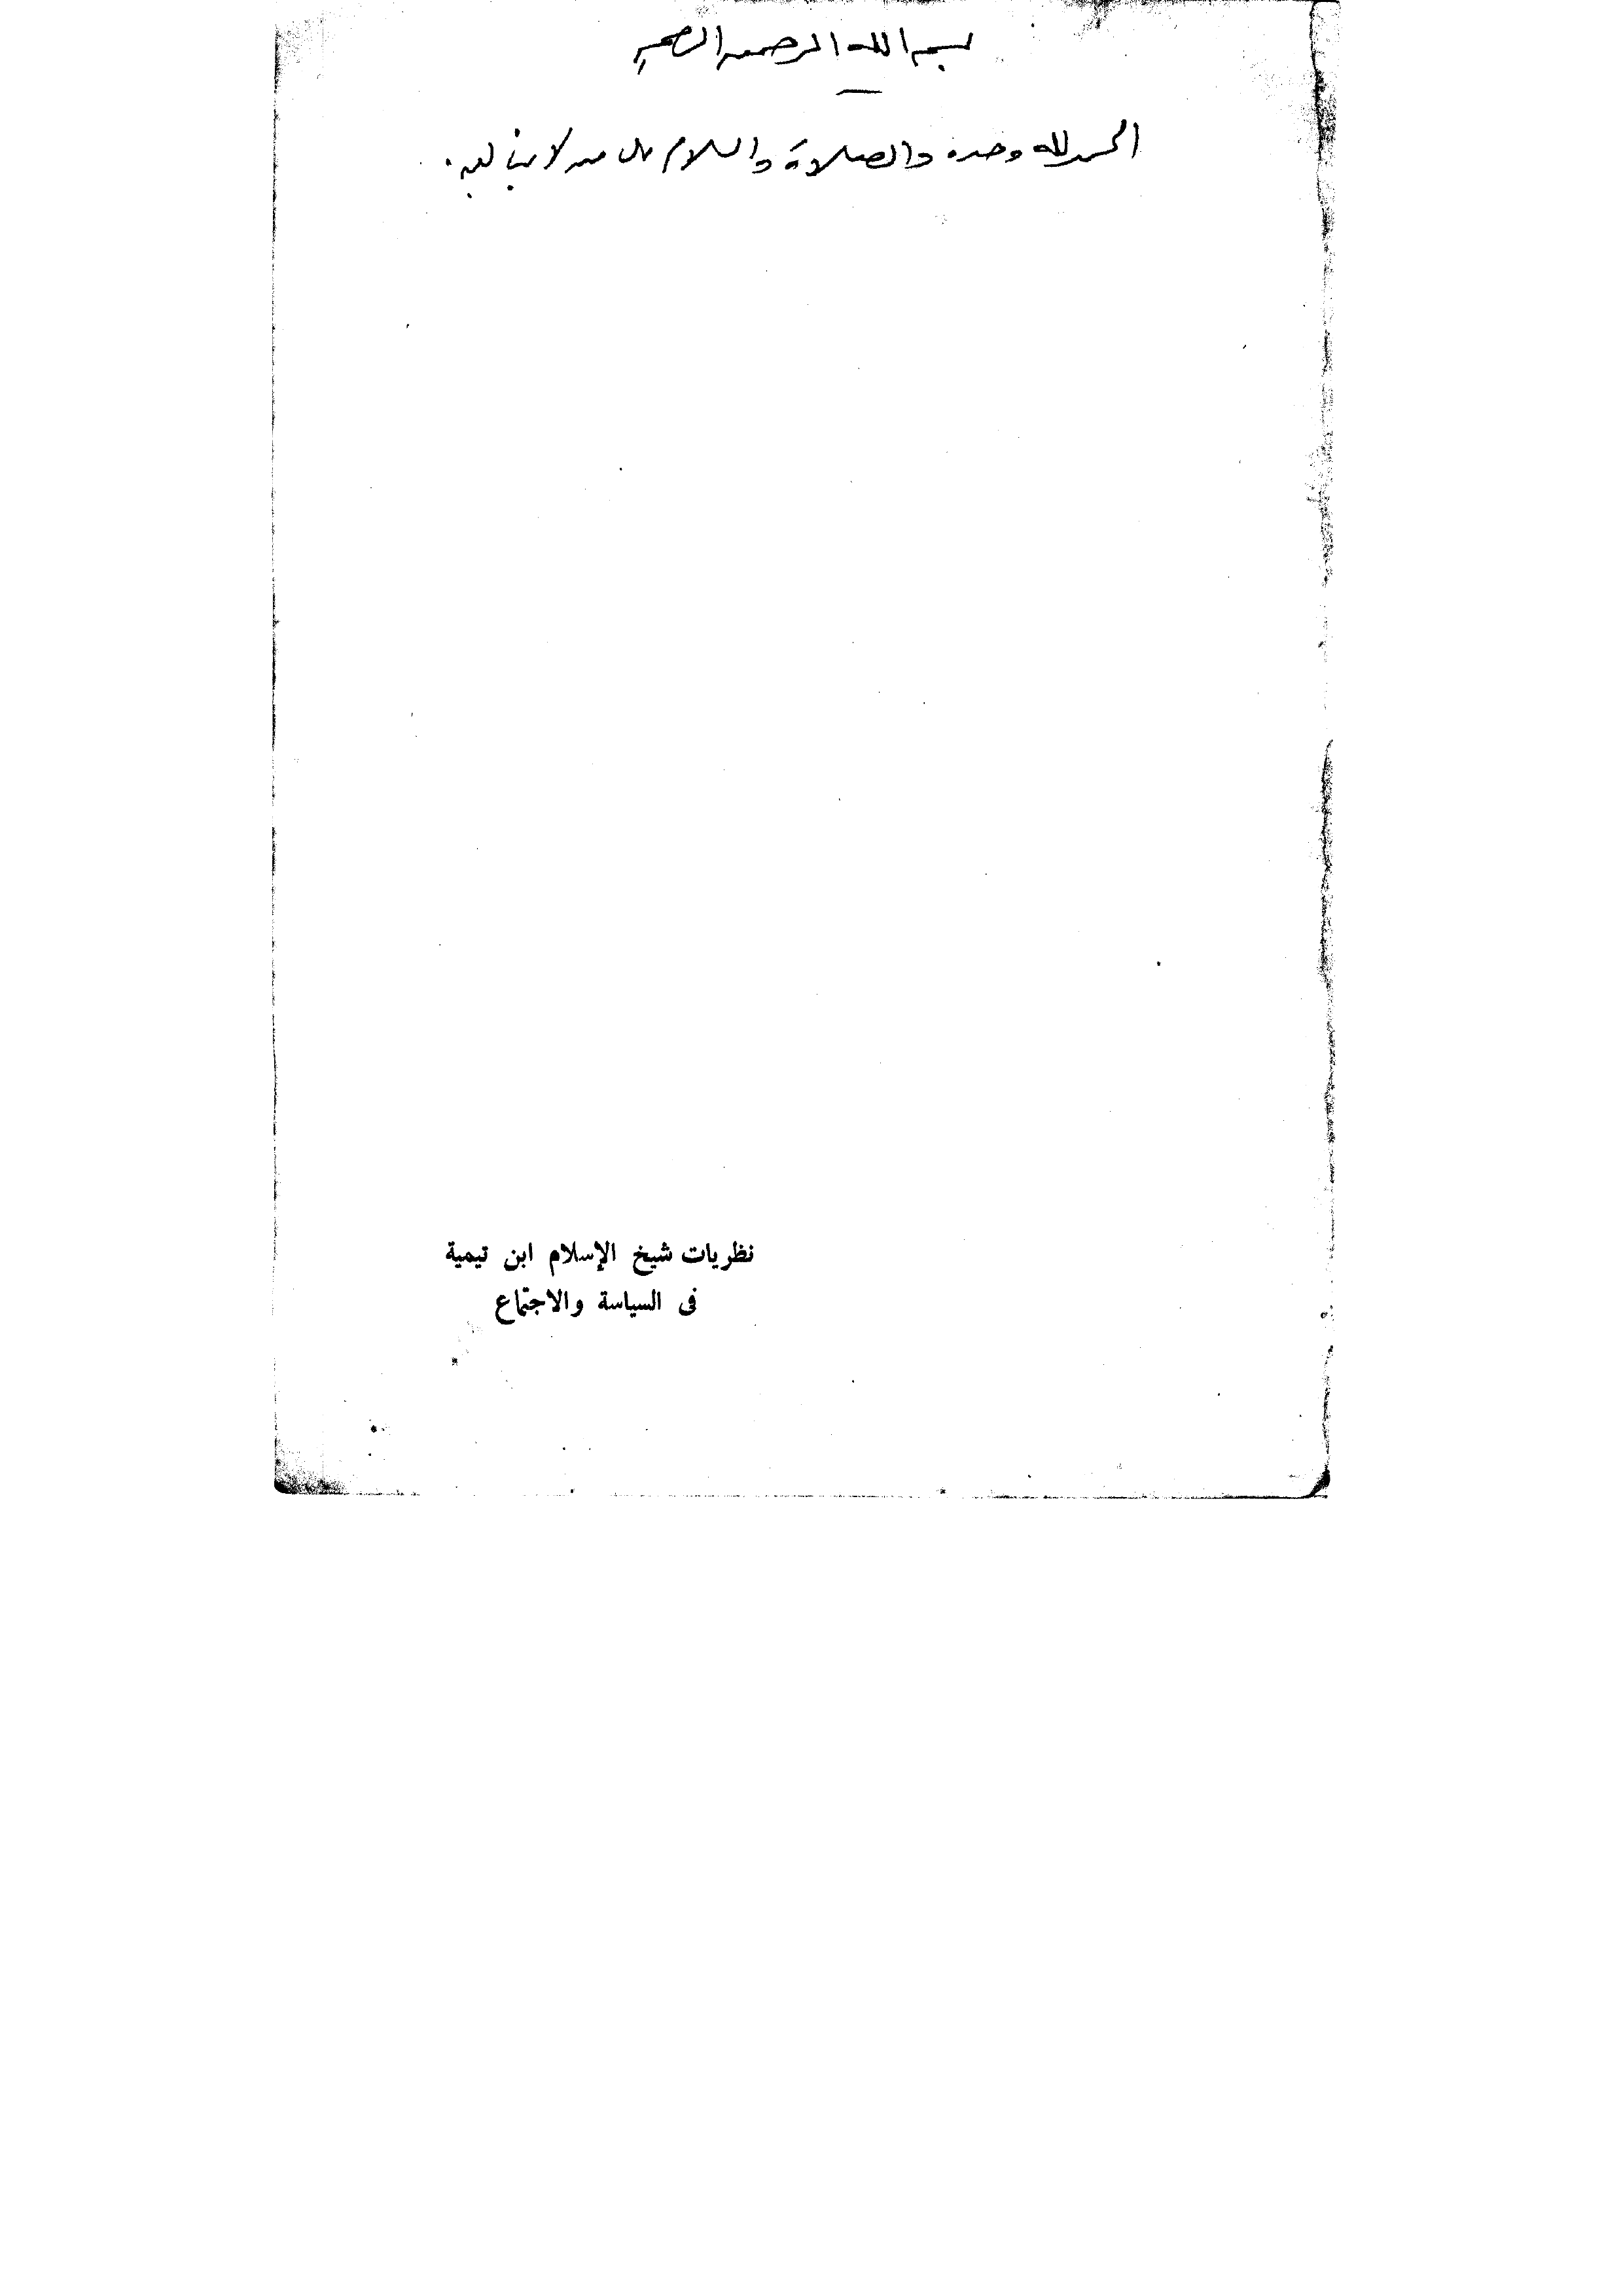 بسم الله الرحمن الرحيم
الحمد لله وحده والصلاة والسلام على من لا نبي بعده.
نظريات شيخ الإسلام ابن تيمية
فى السياسة والاجتماع